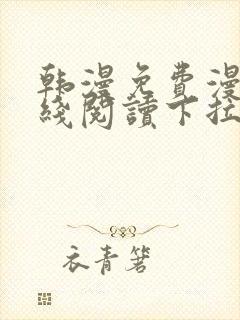 韩漫免費漫
綫閱讀下拉
衣青箬